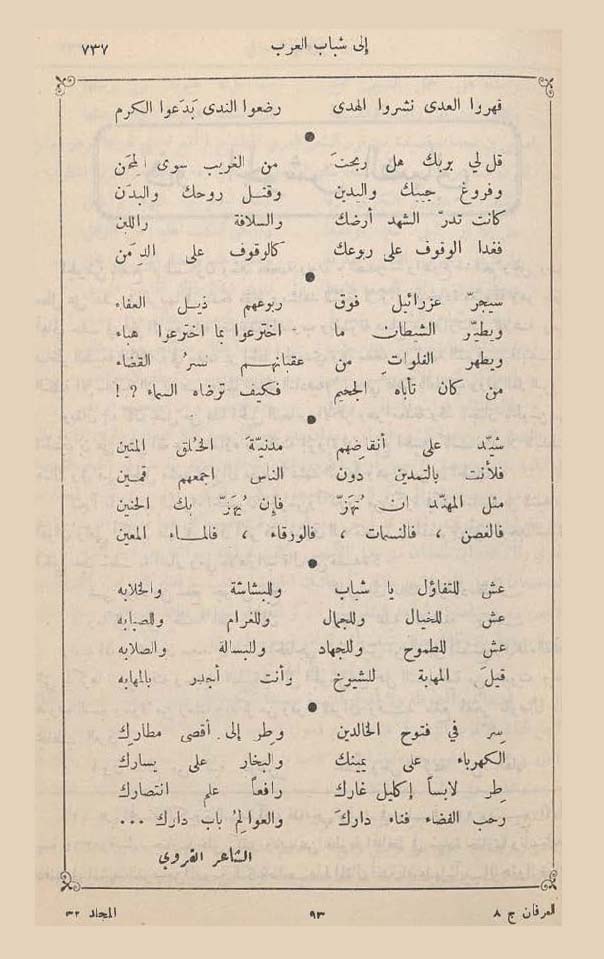 إلى شباب العرب ٧٣٧
قهروا العدى نشروا الهدى رضعوا الندى بَدَعوا الكرم
قل لي بربك هل ربحتَ من الغريب سوى المِحَن
وفروغ جيبك واليدين وقتــل روحك والبدَن
كانت تدرّ الشهد أرضك والسلافة واللبن
فغدا الوقوف على ربوعك كالرقوف على الدِمَن
سيجرّ عزرائيل فوق ربوعهم ذيــل العفاء
ويطيّر الشيطان ما اخترعوا بما اخترعوا هباء
ويطهر الفلوات من عقبانهــم نسرُ القضاء
من كان تأباه الجحيم فـكيف ترضاه السماء ? !
شيّد على أنقاضهم مدنيّةَ الخُلق المتين
فلأنت بالتمدين دون الناس اجمعهم قمــين
مثل المهنّد ان تُهزّ فإن يُهزّ بك الحنين
فالغصن ، فالنسمات ، فالورقاء ، فالمــاء المعين
عش للتفاؤل يا شباب وللبشاشة والخلابه
عش للخيال وللجمال وللغرام وللصبابه
عش للطموح وللجهاد وللبسالة والصلابه
قيلَ المهابة للشيوخ وأنت أجدر بالمهابه
سِر في فتوح الخالدين وطر إلى أقصى مطارك
الكهرباء على يمينك والبخار على يسارك
طِر لابساً إكليل غارك رافعاً علم انتصارك
رحب الفضاء فناء دارك والعوالمُ باب دارك ...
الشاعر القروي
العرفان ج ٨ ٩٣ المجلد ٣٢